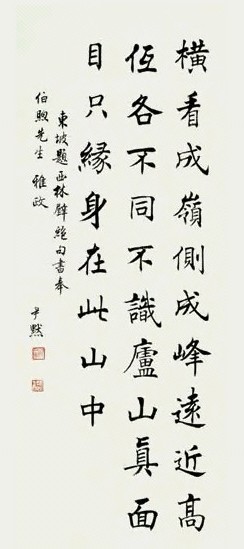 橫看成嶺側成峰遠近高
低各不同不識廬山真面
目只緣身在此山中
東坡題西林壁絕句書奉
伯煦先生雅政
尹默